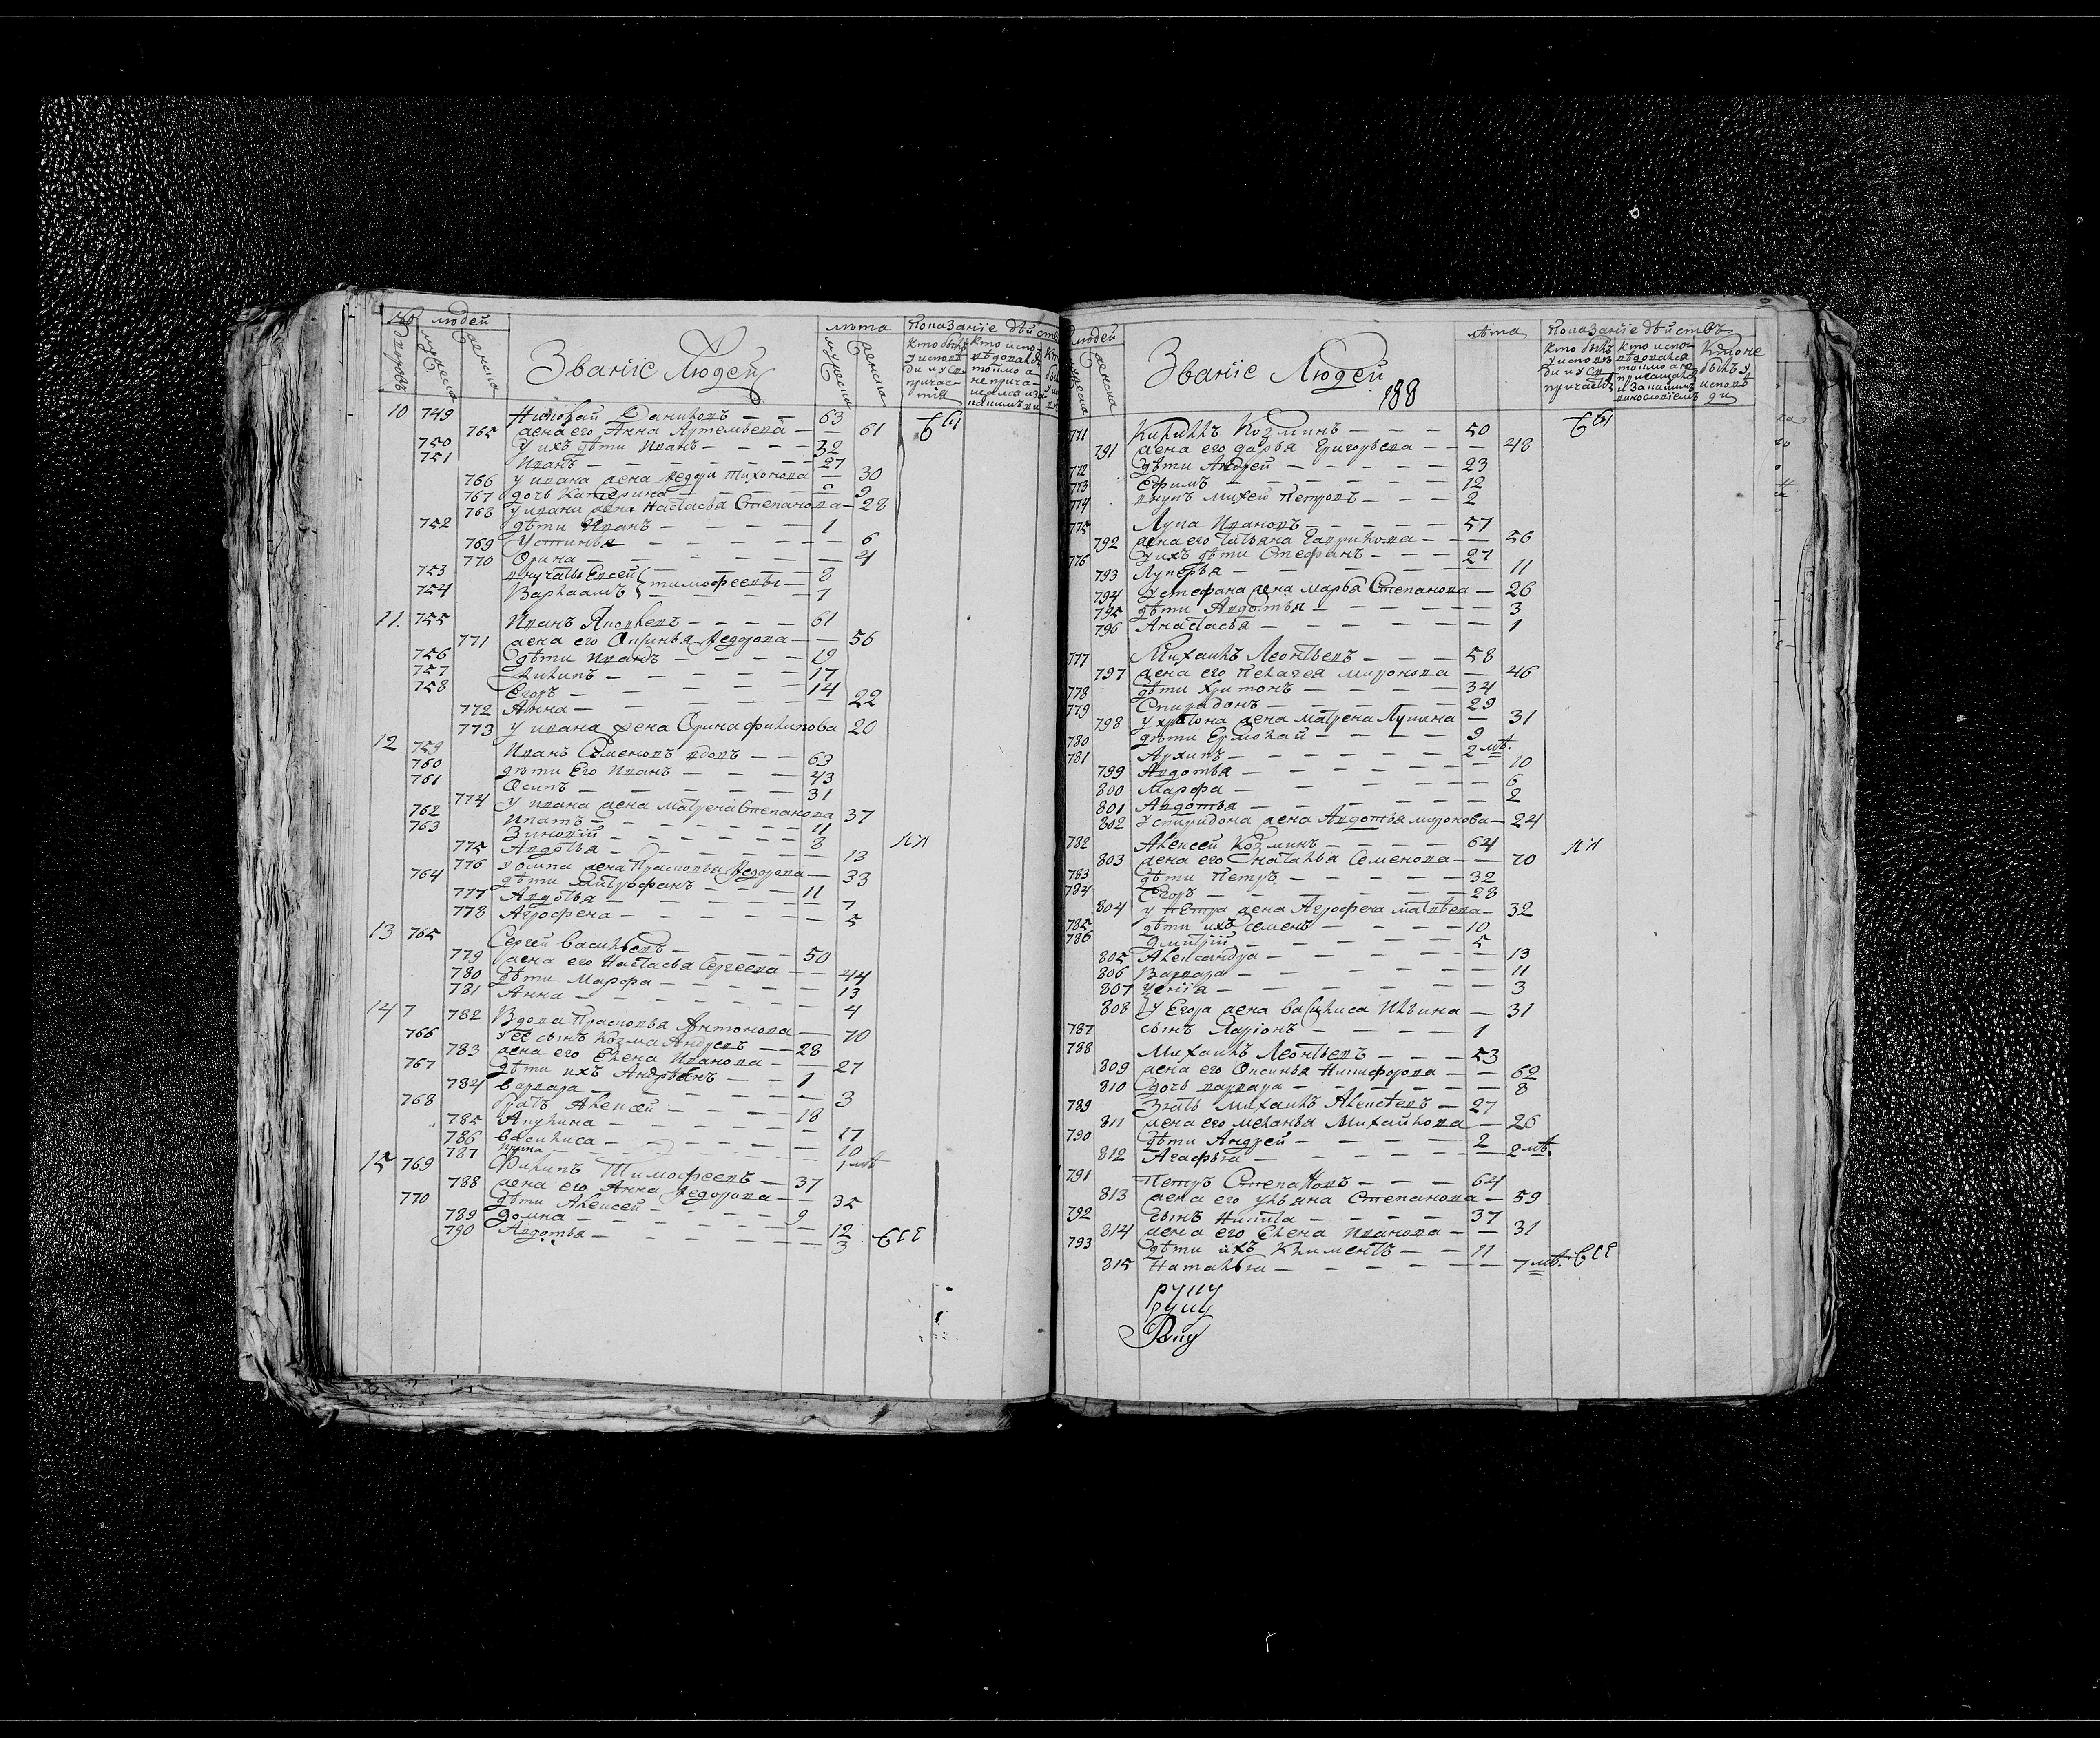 людей
Званіе Людей
лѣта
Показаніе дѣйствъ
10 749 Николай Даниловъ — — 63
765 жена его Анна Артемьева — — 61
750 У ихъ дѣти Иванъ — — — 32
751 Иванъ — — — 27
766 у ивана жена Ѳедора Тихонова — 30
767 дочь Катерина — — 9
768 у ивана жена Настасья Степанова — 28
752 дѣти Иванъ — — — 1
769 Устинья — — — 6
770 Орина — — — 4
753 внучаты Евсей тимофеевы — 8
754 Варлаамъ — — — 7
11 755 Иванъ Яковлевъ — — — 61
771 жена его Аксинья Ѳедорова — — 56
756 дѣти Иванъ — — — 19
757 Филипъ — — — 17
758 Егоръ — — — 14
772 Анна — — — 22
773 у ивана жена Орина филипова 20
12 759 Иванъ Семеновъ вдовъ — — 63
760 дѣти Его Иванъ — — — 43
761 Осипъ — — — 31
774 у ивана жена матрена Степанова 37
762 Ипатъ — — — 11
763 Зиновій — — — 8
775 Авдотья — — — 13
776 у осипа жена Прасковья Ѳедорова — 33
764 дѣти Митрофанъ — — 11
777 Авдотья — — — 7
778 Агрофена — — — 5
13 765 Сергей Васильевъ — — 50
779 жена его Настасья Сергеева — — 44
780 дѣти Марфа — — — 13
781 Анна — — — 4
14 7 782 Вдова Прасковья Антонова — 70
766 у ее сынъ Козма Андреевъ — 28
783 жена его Елена Иванова — — 27
767 дѣти ихъ Андреянъ — — 1
784 варвара — — — 3
768 братъ Алексей — — 18
785 Акулина — — — 17
786 василиса — — — 10
787 Ирина — — — 1 мѣ
15 769 Филипъ Тимофеевъ — 37
788 жена его Анна Ѳедорова — — 35
770 дѣти Алексей — — 9
789 домна — — — 12
790 Авдотья — — — 3
людей
Званіе Людей
188
лѣта
Показаніе дѣйствъ
771 Кирилъ Козминъ — — — 50
791 жена его дарья Григорьева — — 48
772 дѣти Андрей — — — 23
773 Ефимъ — — — 12
774 внукъ михей Петровъ — — — 2
775 Лупа Ивановъ — — — 57
792 жена его Татьяна Гаврилова — — 56
776 у ихъ дѣти Стефанъ — — — 27
793 Лукерья — — — 11
794 у стефана жена марья Степанова — 26
795 дѣти Авдотья — — — 3
796 Анастасья — — — 1
777 Михаилъ Леонтьевъ — — — 58
797 жена его Пелагея миронова — 46
778 дѣти Хритонъ — — — 34
779 Спиридонъ — — — 29
798 у хритона жена матрена Лупина — 31
780 дѣти Ермолай — — — 9
781 Архипъ — — — 2 мѣ.
799 Авдотья — — — 10
800 Марфа — — — 6
801 Авдотья — — — 2
802 У спиридона жена Авдотья миронова — 24
782 Алексей Козминъ — — — 64
803 жена его Наталья Семенова — — 70
783 дѣти Петръ — — — 32
784 Егоръ — — — 28
804 у петра жена Агрофена матвеева — 32
785 дѣти ихъ Семенъ — — — 10
786 Дмитрій — — — 5
805 Александра — — — 13
806 Варвара — — — 11
807 — — — 3
808 У Егора жена василиса Ильина — 31
787 сынъ Ларіонъ — — — 1
788 Михаилъ Леонтьевъ — — — 53
809 жена его Аксинья Никифорова — — 62
810 дочь варвара — — — 8
789 Зять михаилъ Алексеевъ — 27
811 жена его меланья Михайлова — 26
790 дѣти Андрей — — — 2
812 Агафья — — — 2 мѣ.
791 Петръ Степановъ — — — 64
813 жена его ульяна Степанова — 59
792 сынъ Никита — — — 37
814 жена его Елена Иванова — — 31
793 дѣти ихъ Климентъ — — 11
815 Наталья — — — 7 мѣ.
руку
руку
Руку